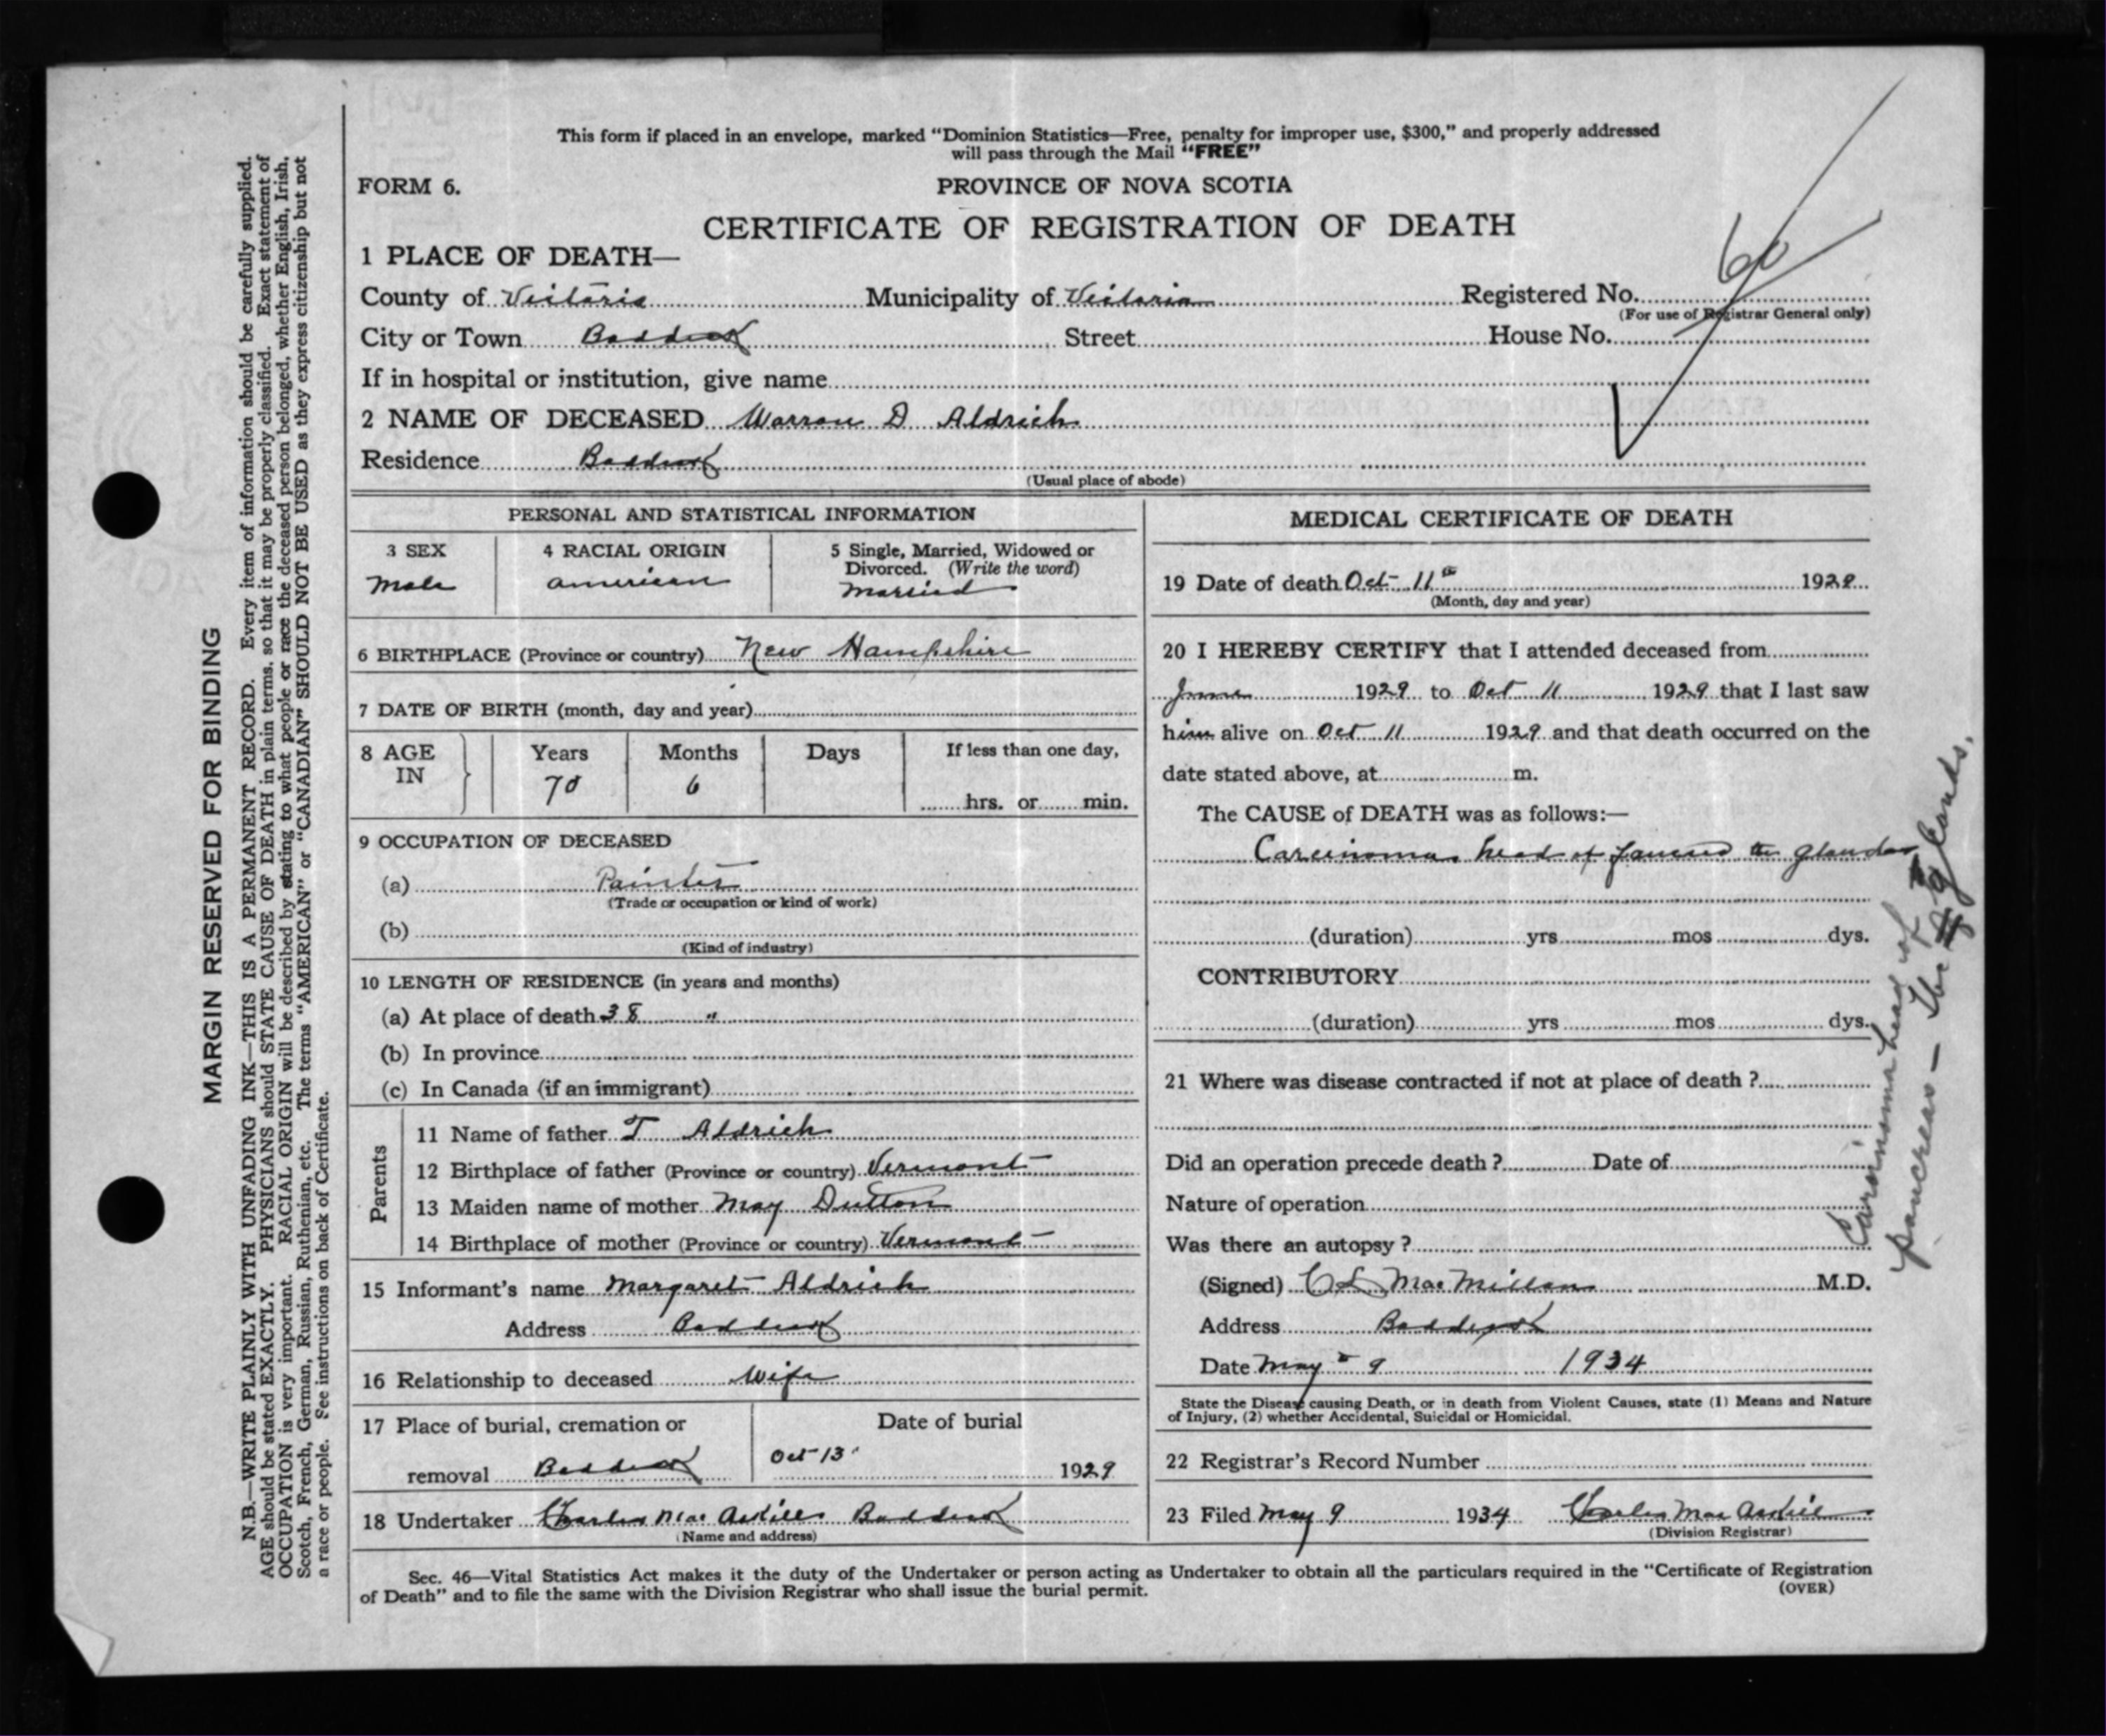 This form if placed in an envelope, marked “Dominion Statistics—Free, penalty for improper use, $300,” and properly addressed
will pass through the Mail “FREE”
FORM 6.
PROVINCE OF NOVA SCOTIA
CERTIFICATE OF REGISTRATION OF DEATH
1 PLACE OF DEATH—
County of Victoria Municipality of Victoria Registered No. 60
(For use of Registrar General only)
City or Town Baddeck Street House No.
If in hospital or institution, give name
2 NAME OF DECEASED Warren D Aldrich
Residence Baddeck
(Usual place of abode)
PERSONAL AND STATISTICAL INFORMATION
3 SEX 4 RACIAL ORIGIN 5 Single, Married, Widowed or
Divorced. (Write the word)
Male American Married
6 BIRTHPLACE (Province or country) New Hampshire
7 DATE OF BIRTH (month, day and year)
8 AGE IN Years Months Days If less than one day,
70 6 hrs. or min.
9 OCCUPATION OF DECEASED
(a) Painter
(Trade or occupation or kind of work)
(b)
(Kind of industry)
10 LENGTH OF RESIDENCE (in years and months)
(a) At place of death 38 "
(b) In province
(c) In Canada (if an immigrant)
Parents
11 Name of father T Aldrich
12 Birthplace of father (Province or country) Vermont
13 Maiden name of mother May Dutton
14 Birthplace of mother (Province or country) Vermont
15 Informant's name Margaret Aldrich
Address Baddeck
16 Relationship to deceased Wife
17 Place of burial, cremation or Date of burial
removal Baddeck Oct 13 1929
18 Undertaker Charles MacAskill Baddeck
(Name and address)
MEDICAL CERTIFICATE OF DEATH
19 Date of death Oct 11th 1929
(Month, day and year)
20 I HEREBY CERTIFY that I attended deceased from
June 1929 to Oct 11 1929 that I last saw
him alive on Oct 11 1929 and that death occurred on the
date stated above, at m.
The CAUSE of DEATH was as follows:—
Carcinoma head of pancreas the glands
(duration) yrs mos dys.
CONTRIBUTORY
(duration) yrs mos dys.
21 Where was disease contracted if not at place of death ?
Did an operation precede death ? Date of
Nature of operation
Was there an autopsy ?
(Signed) C L MacMillan M.D.
Address Baddeck
Date May 9 1934
State the Disease causing Death, or in death from Violent Causes, state (1) Means and Nature
of Injury, (2) whether Accidental, Suicidal or Homicidal.
22 Registrar's Record Number
23 Filed May 9 1934 Charles MacAskill
(Division Registrar)
Carcinoma head of
pancreas — the glands.
Sec. 46—Vital Statistics Act makes it the duty of the Undertaker or person acting as Undertaker to obtain all the particulars required in the “Certificate of Registration
of Death” and to file the same with the Division Registrar who shall issue the burial permit.
(OVER)
MARGIN RESERVED FOR BINDING
N.B.—WRITE PLAINLY WITH UNFADING INK—THIS IS A PERMANENT RECORD. Every item of information should be carefully supplied.
AGE should be stated EXACTLY. PHYSICIANS should STATE CAUSE OF DEATH in plain terms, so that it may be properly classified. Exact statement of
OCCUPATION is very important. RACIAL ORIGIN will be described by stating to what people or race the deceased person belonged, whether English, Irish,
Scotch, French, German, Russian, Ruthenian, etc. The terms “AMERICAN” or “CANADIAN” SHOULD NOT BE USED as they express citizenship but not
a race or people. See instructions on back of Certificate.